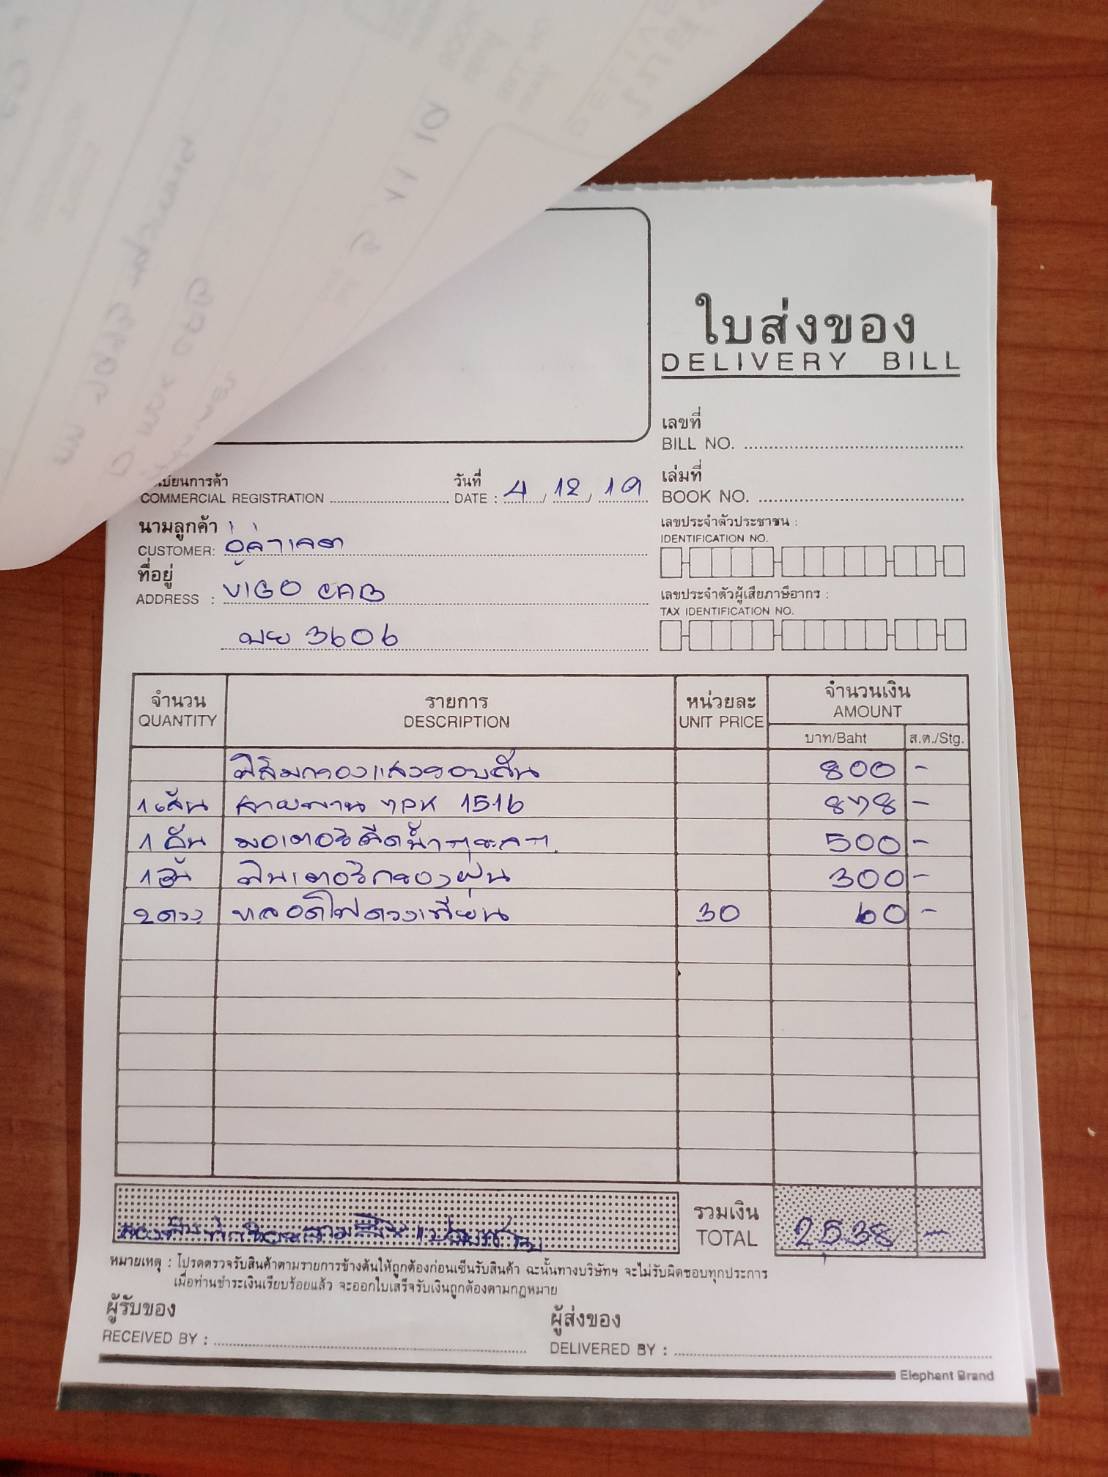 ใบส่งของ
DELIVERY BILL
เลขที่
BILL NO.
ทะเบียนการค้า
COMMERCIAL REGISTRATION
วันที่
DATE : 4, 12, 19
เล่มที่
BOOK NO.
นามลูกค้า
CUSTOMER: อู่ค่าเจต
เลขประจำตัวประชาชน :
IDENTIFICATION NO.
ที่อยู่
ADDRESS : VIGO CAB
3606
เลขประจำตัวผู้เสียภาษีอากร :
TAX IDENTIFICATION NO.
จำนวน
QUANTITY
รายการ
DESCRIPTION
หน่วยละ
UNIT PRICE
จำนวนเงิน
AMOUNT
บาท/Baht
ส.ต./Stg.
ฟิล์มกรองแสงรอบคัน 800 -
1 เส้น สายพาน 7PK 1516 878 -
1 อัน มอเตอร์ฉีดน้ำ 500 -
1 อัน ฟิลเตอร์กรองฝุ่น 300 -
2 ดวง หลอดไฟดวงเทียน 30 60 -
รวมเงิน
TOTAL 2,538 -
หมายเหตุ : โปรดตรวจรับสินค้าตามรายการข้างต้นให้ถูกต้องก่อนเซ็นรับสินค้า ฉะนั้นทางบริษัทฯ จะไม่รับผิดชอบทุกประการ
เมื่อท่านชำระเงินเรียบร้อยแล้ว จะออกใบเสร็จรับเงินถูกต้องตามกฎหมาย
ผู้รับของ
RECEIVED BY :
ผู้ส่งของ
DELIVERED BY :
Elephant Brand